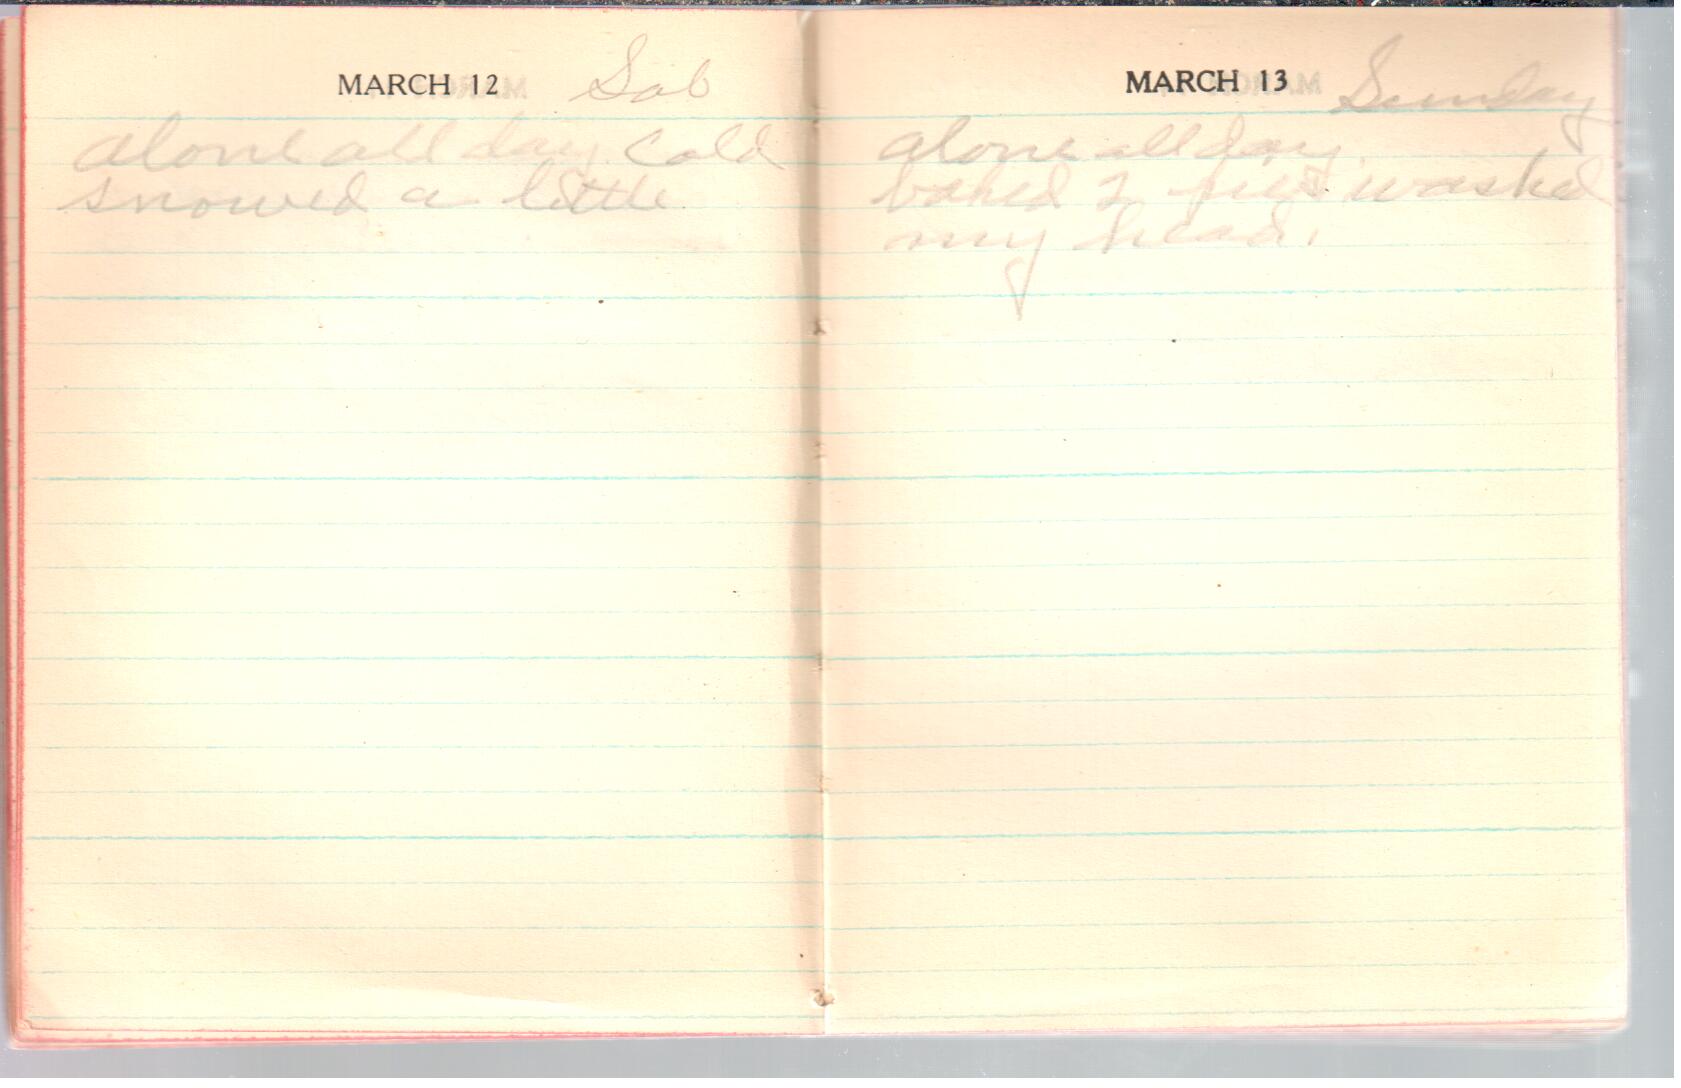 MARCH 12 Sab
alone all day. Cold
snowed a little
MARCH 13 Sunday
alone all day.
baked 2 pies washed
my head.